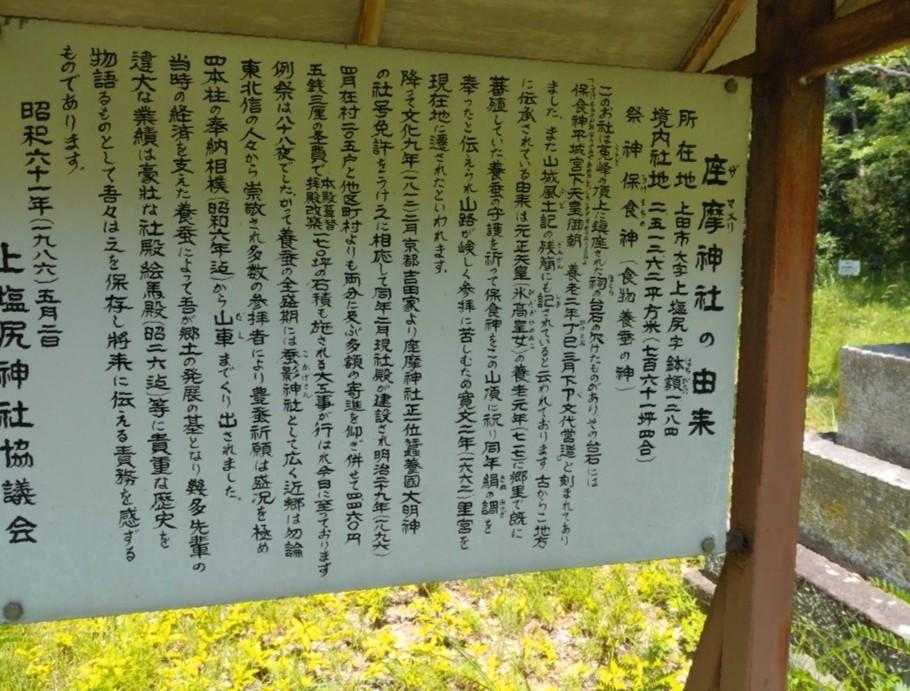 座摩神社の由来
ザ マスリ
所在地 上田市大字上塩尻字鉢額一二八四
境内社地 二五一二六二平方米(七百六十一坪四合)
祭神 保食神(食物養蚕の神)
このお社は冠峰の頂上に鎮座された祠の台石の欠けたものがありその台石には
「保食神平城宮下天皇御朝 養老二年丁巳三月下下文代営造」と刻まれてあり
ました また山城風土記の残簡にも記されていると云われております 古からこ地方
に伝承されている由来は元正天皇(氷高皇女)の養老元年(七一七)郷里で既に
蕃殖していた養蚕の守護を祈って保食神をこの山頂に祀り同年絹の調を
奉ったと伝えられ山路が峻しく参拝に苦しむため寛文二年(一六六二)里宮を
現在地に遷されたといわれます。
降って文化九年(一八一二)二月京都吉田家より座摩神社正一位蚕養国大明神
の社号免許をうけ之に相応して同年二月現社殿が建設され明治二十九年(一八九六)
四月在村二百五戸と他区町村よりも両分に及ぶ多額の寄進を仰ぎ併せて四四六〇円
五銭三厘の圭費で本殿葺替拝殿改築一七〇坪の石積も施される大工事が行はれ今日に至ております
例祭は八十八夜でしたがって養蚕の全盛期には蚕影神社として広く近郷は勿論
東北信の人々から崇敬され多数の参拝者により豊蚕祈願は盛況を極め
四本柱の奉納相撲(昭和六年迄)から山車までくり出されました。
当時の経済を支えた養蚕によって吾が郷土の発展の基となり幾多先輩の
偉大な業績は豪壮な社殿絵馬殿(昭二六迄)等に貴重な歴史を
物語るものとして吾々は之を保存し将来に伝える責務を感ずる
ものであります。
昭和六十一年(一九八六)五月二日
上塩尻神社協議会